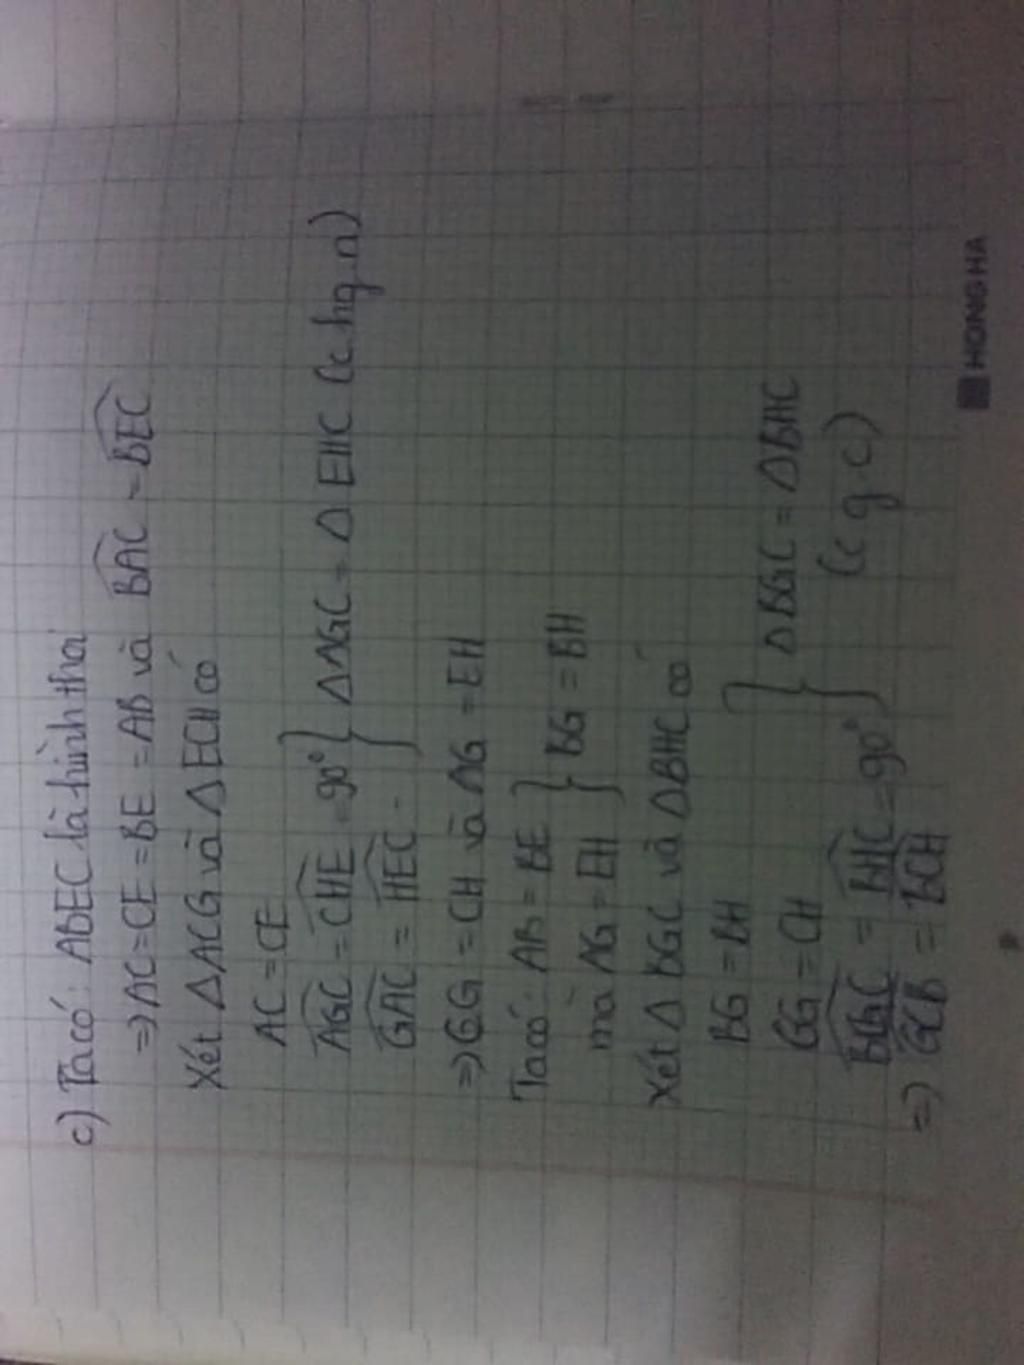 c) Ta có: ABEC là hình thoi
=> AC = CE = BE = AB và \widehat{BAC} = \widehat{BEC}
Xét Δ ACG và Δ ECH có
AC = CE
\widehat{AGC} = \widehat{CHE} = 90° } Δ AGC = Δ EHC (c.hg.n)
\widehat{GAC} = \widehat{HEC}
=> GG = CH và AG = EH
Ta có: AB = BE } BG = BH
mà AG = EH
Xét Δ BGC và Δ BHC có
BG = BH
GG = CH } Δ BGC = Δ BHC
\widehat{BGC} = \widehat{BHC} = 90° (c g c)
=> \widehat{GCB} = \widehat{BCH}
HONG HA